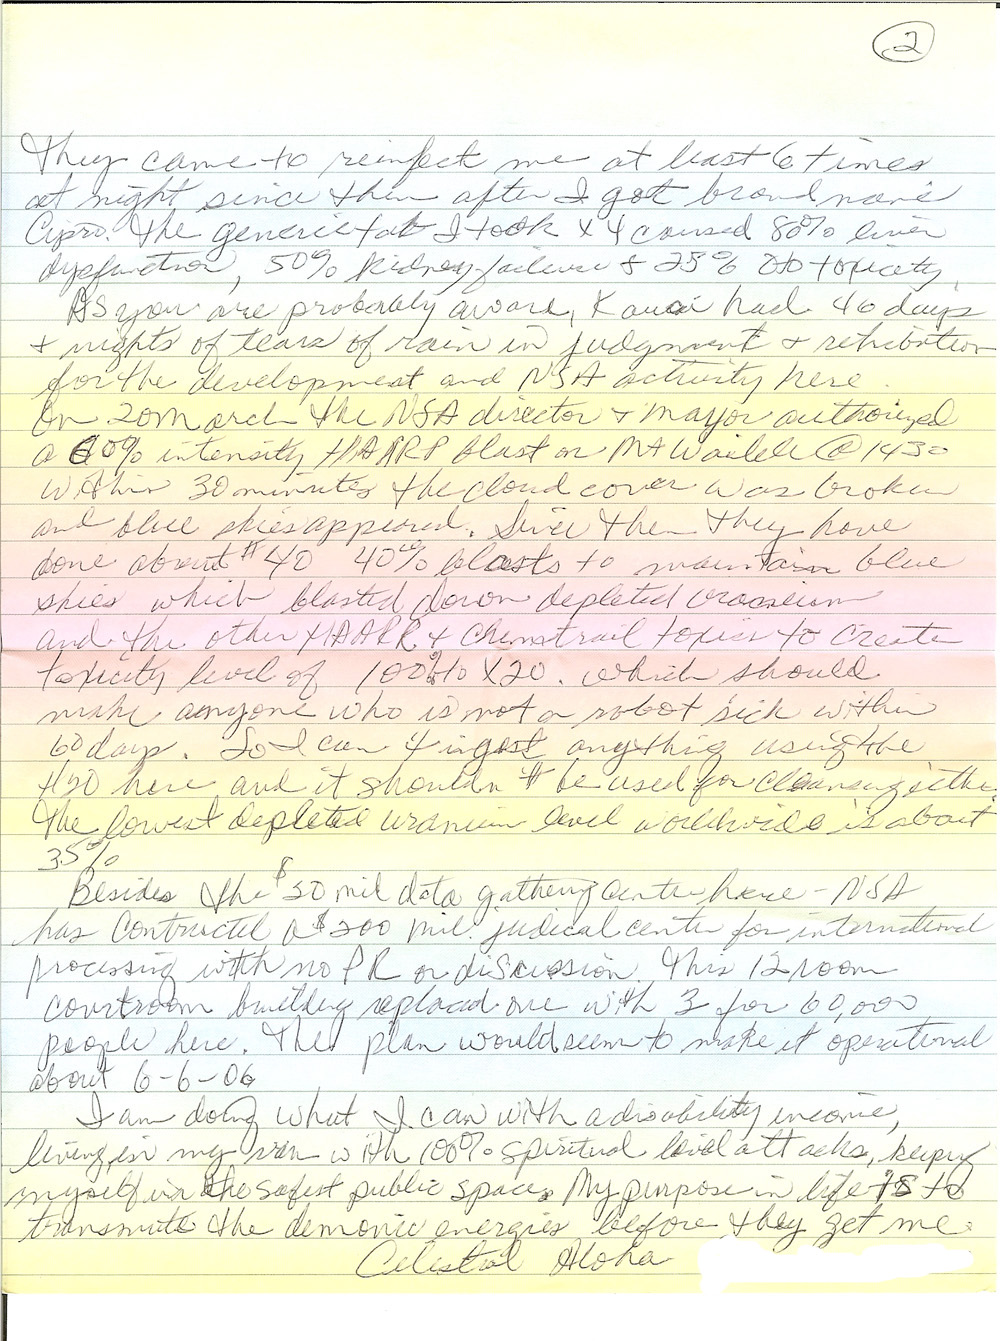 2
They came to reinfect me at least 6 times
at night since then after I got brand name
Cipro. The generic tab I took x 4 caused 80% liver
dysfunction, 50% kidney failure & 25% oto toxicity
As you are probably award, Kauai had 40 days
+ nights of tears of rain in judgment + retribution
for the development and NSA activity here.
On 20 March the NSA director + mayor authorized
a 60% intensity HAARP blast on Mt Wailele @ 1430
Within 30 minutes the cloud cover was broken
and blue skies appeared. Since then they have
done about # 40 40% blasts to maintain blue
skies which blasted down depleted
and the other HAARP + Chemtrail toxics to create
toxicity level of 100% to X20. which should
make anyone who is not a robot sick within
60 days. So I can't ingest anything using the
H20 here and it shouldn't be used for cleansing either
The lowest depleted uranium level worldwide is about
35%
Besides the $ 50 mil data gathering center here - NSA
has Contracted a $200 mil. judicial center for international
processing with no PR or discussion. This 12 room
courtroom building replaced one with 3 for 60,000
people here. The plan would seem to make it operational
about 6-6-06
I am doing what I can with a disability income,
living in my van with 100% spiritual level attacks, keeping
myself in the safest public space. My purpose in life is to
transmute the demonic energies before they get me.
Celestial Aloha